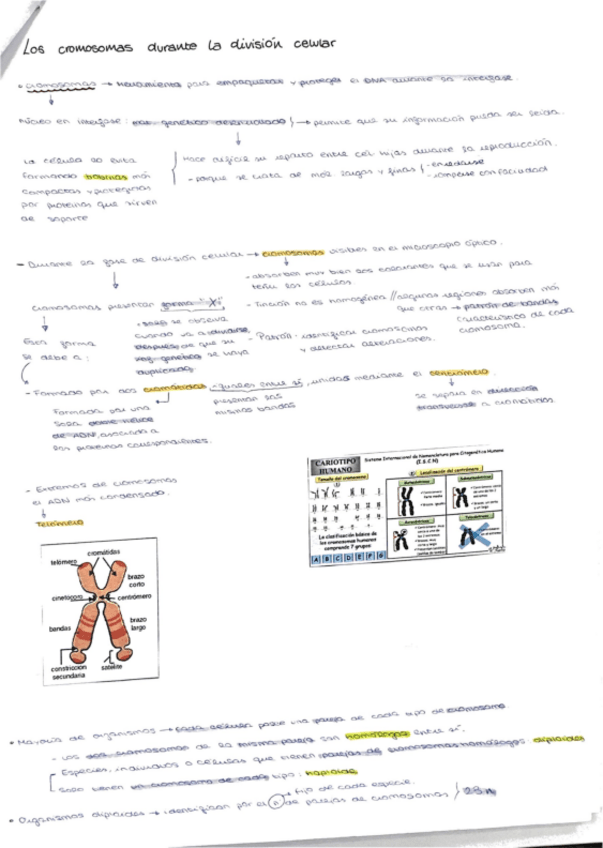 Los cromosomas durante la división celular
• cromosomas → herramienta para empaquetar y proteger el DNA durante la interfase.
Núcleo en interfase: → permite que su información pueda ser leída.
La célula lo evita
formando más
compactas y protegidas
por proteínas que sirven
de soporte
Hace difícil su reparto entre cél. hijas durante la reproducción.
- porque se trata de mol. largas y finas
- enredarse
- romperse con facilidad
- Durante la fase de división celular → cromosomas visibles en el microscopio óptico.
- absorben muy bien los colorantes que se usan para
teñir las células
- Tinción no es homogénea // algunas regiones absorben más
que otras → patrón de bandas
característico de cada
cromosoma.
- Patrón: identificar cromosomas
y detectar alteraciones.
cromosomas presentan forma "X"
- solo se observa
cuando va a dividirse
después de que su
se haya
duplicado
Esta forma
se debe a:
- Formado por dos cromátidas - iguales entre sí, unidas mediante el centrómero
Formada por una
sola doble hélice
de ADN, asociada a
las proteínas correspondientes.
presentan las
mismas bandas
se separa en
a cromátidas.
- Extremos de cromosomas
el ADN más condensado.
Telómero
CARIOTIPO
HUMANO
Sistema Internacional de Nomenclatura para Citogenética Humana
(I.S.C.N)
Tamaño del cromosoma
Localización del centrómero
La clasificación básica de
los cromosomas humanos
comprende 7 grupos
A B C D E F G
cromátidas
telómero
brazo
corto
cinetocoro
centrómero
bandas
brazo
largo
constricción
secundaria
satélite
• Mayoría de organismos → cada célula posee una pareja de cada tipo de cromosoma
- Los dos cromosomas de la misma pareja son homólogos entre sí.
Especies, individuos o células que tienen parejas de cromosomas homólogos: diploides
Solo tienen un cromosoma de cada tipo: haploide
nº fijo de cada especie.
• Organismos diploides → identifican por el n de parejas de cromosomas / 2n